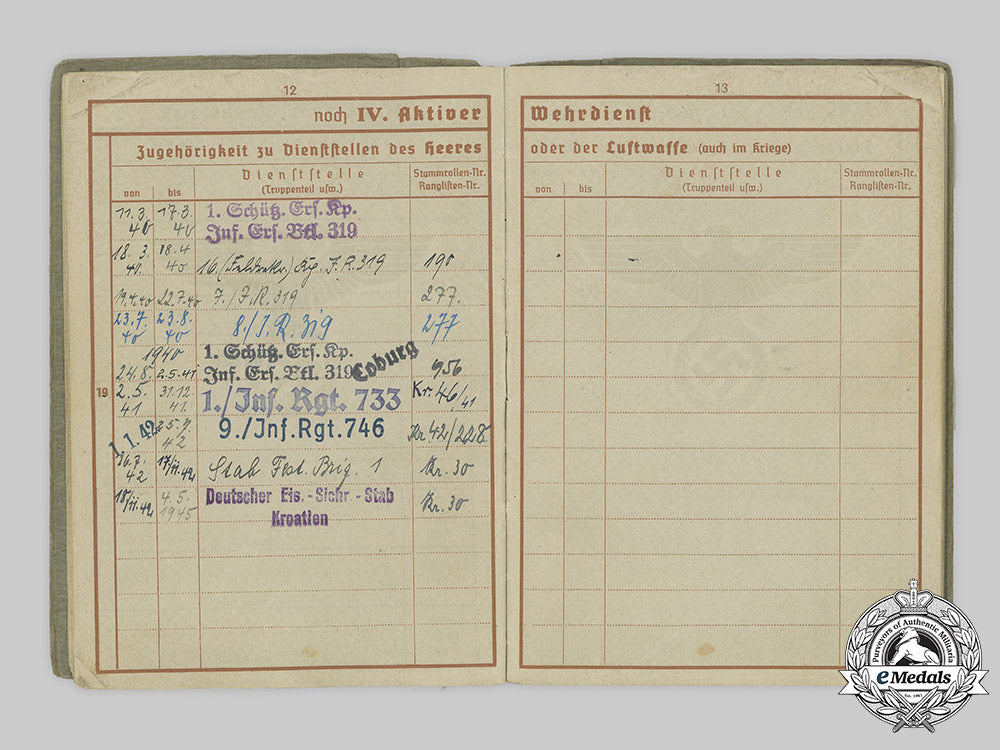 12
noch IV. Aktiver
Zugehörigkeit zu Dienststellen des Heeres
von
bis
Dienststelle
(Truppenteil usw.)
Stammrollen-Nr.
Ranglisten-Nr.
11.3.
40
17.3.
40
1. Schütz. Ers. Kp.
Inf. Ers. Btl. 319
18.3.
40.
18.4
40
16. (Feldrekr.) Kp. J.R. 319
190
19.4.40
22.7.40
7./J.R. 319
277.
23.7.
40
23.8.
40
8./J.R. 319
277
1940
24.8.
2.5.41
1. Schütz. Ers. Kp.
Inf. Ers. Btl. 319
Coburg
956
19
2.5.
41
31.12.
41.
1./Inf. Rgt. 733
Kr. 46/41
1.1.42
25.9.
42
9./Inf.Rgt.746
Kr 42/228
42
17/11.42
Stab Fest. Brig. 1
Kr. 30
18/11.42
4.5.
1945
Deutscher Eis.-Sichr.-Stab
Kroatien
Kr. 30
13
Wehrdienst
oder der Luftwaffe (auch im Kriege)
von
bis
Dienststelle
(Truppenteil usw.)
Stammrollen-Nr.
Ranglisten-Nr.
Purveyors of Authentic Militaria
eMedals